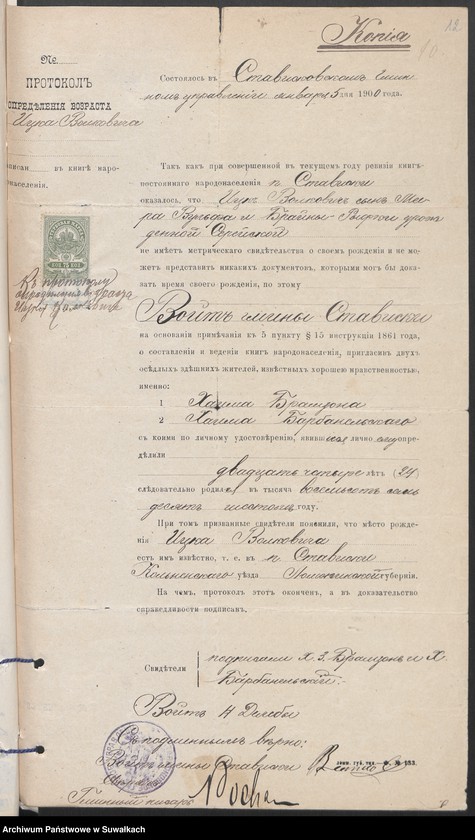 Копія
22
№
ПРОТОКОЛЪ
ОПРЕДѢЛЕНІЯ ВОЗРАСТА
Ицка Волковича
въ книгѣ наро-
Состоялось въ Стависковскомъ гмин
номъ управленіи января 5 дня 1900 года.
Такъ какъ при совершенной въ текущемъ году ревизіи книгъ
постояннаго народонаселенія п. Стависки
оказалось, что Ицко Волковичъ сынъ Мее-
ра Вульфа и Брайны
денной
не имѣетъ метрическаго свидѣтельства о своемъ рожденіи и не мо-
жетъ представить никакихъ документовъ, которыми могъ бы дока-
зать время своего рожденія, по этому
Войтъ гмины Стависки
на основаніи примѣчанія къ 5 пункту § 15 инструкціи 1861 года,
о составленіи и веденіи книгъ народонаселенія, пригласивъ двухъ
осѣдлыхъ здѣшнихъ жителей, извѣстныхъ хорошею нравственностью,
именно:
1 Хаима Брамзона
2 Хаима Барбанельскаго
съ коими по личному удостовѣренію, явившося лично ему опре-
дѣлили
двадцать четыре лѣтъ (24)
слѣдовательно родился въ тысяча восемьсотъ семь
десятъ шестомъ году.
При томъ призванные свидѣтели пояснили, что мѣсто рожде-
нія Ицка Волковича
есть имъ извѣстно, т. е. въ п. Стависки
Кольненскаго уѣзда Ломжинской губерніи.
На чемъ, протоколъ этотъ оконченъ, а въ доказательство
справедливости подписанъ,
КЪ протоколу
опредѣленія возраста
Ицка Волковича
Свидѣтели
подписали Х. З. Брамзонъ и Х.
Барбанельскій.
Войтъ
Съ подлиннымъ вѣрно:
Войтъ гмины Стависки
Ломж. губ. тип. Ф. № 133.
Гминный писарь
Archiwum Państwowe w Suwałkach